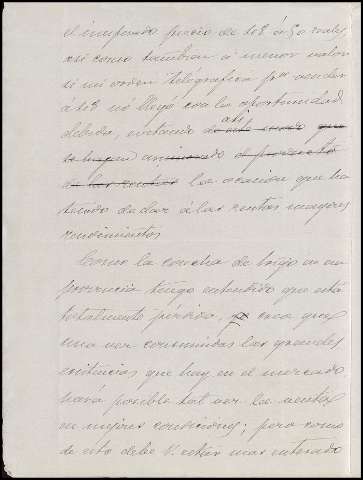 el inesperado precio de 108 á 50 reales,
asi como tambien á menor valor
si mi orden telégrafica para vender
á 108 nó llegó con la oportunidad
debida, evitando así,
la ocasion que ha
tenido de dar á las rentas mayores
rendimientos
Como la cosecha de trigo en esa
provincia tengo entendido que está
totalmente perdida, creo que
una vez consumidas las grandes
existencias que hay en el mercado
hará posible tal vez la venta
en mejores condiciones; pero como
de esto debe V. estár mas enterado